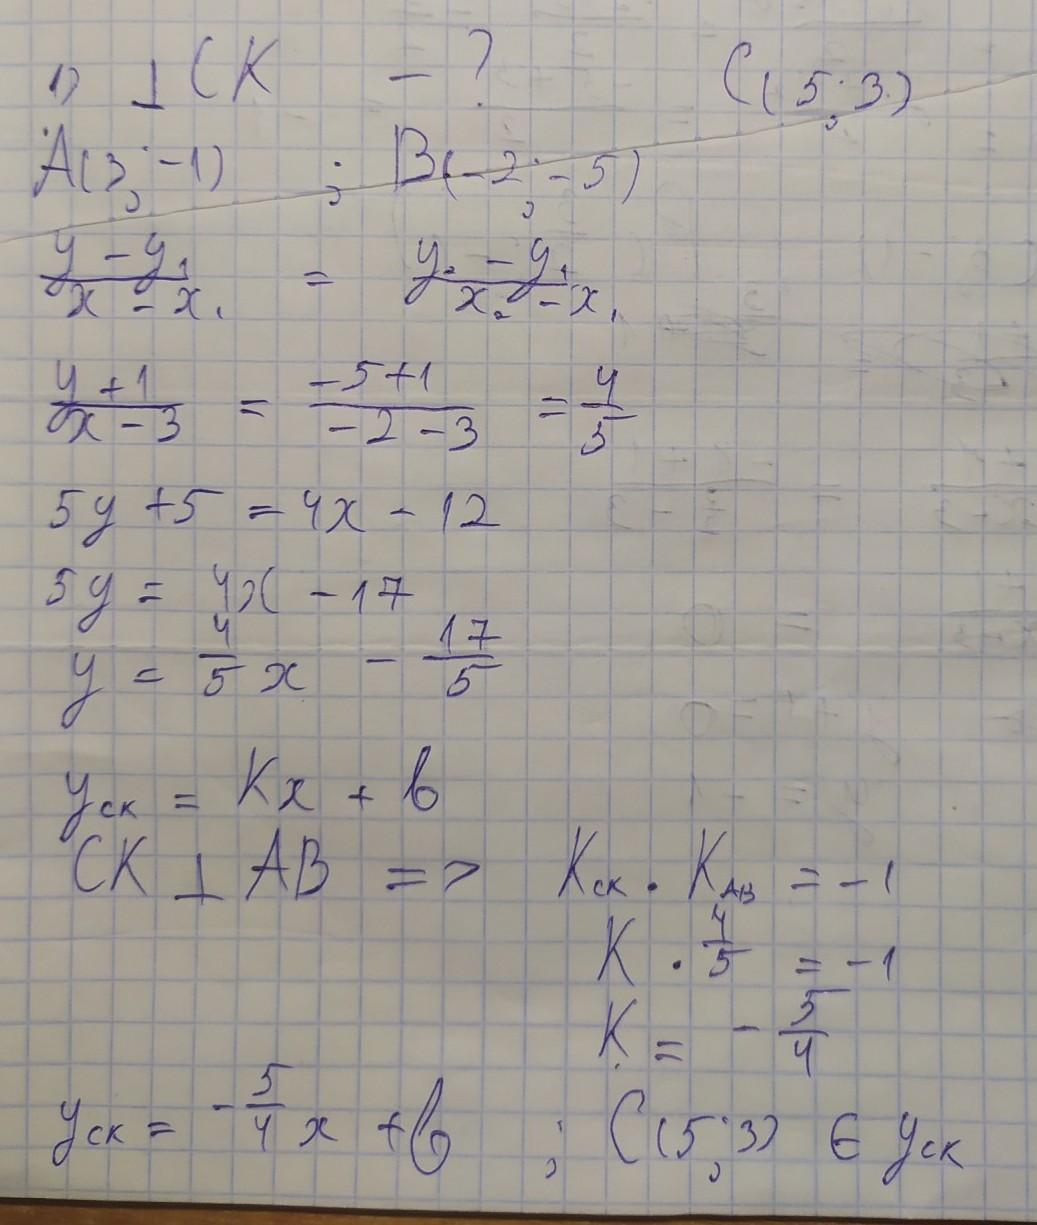 1) ⊥ CK - ? C(5; 3)
A(3; -1) ; B(-2; -5)
(y - y₁)/(x - x₁) = (y₂ - y₁)/(x₂ - x₁)
(y + 1)/(x - 3) = (-5 + 1)/(-2 - 3) = 4/5
5y + 5 = 4x - 12
5y = 4x - 17
y = 4/5 x - 17/5
y_CK = Kx + b
CK ⊥ AB => K_CK · K_AB = -1
K · 4/5 = -1
K = - 5/4
y_CK = - 5/4 x + b ; C(5; 3) ∈ y_CK